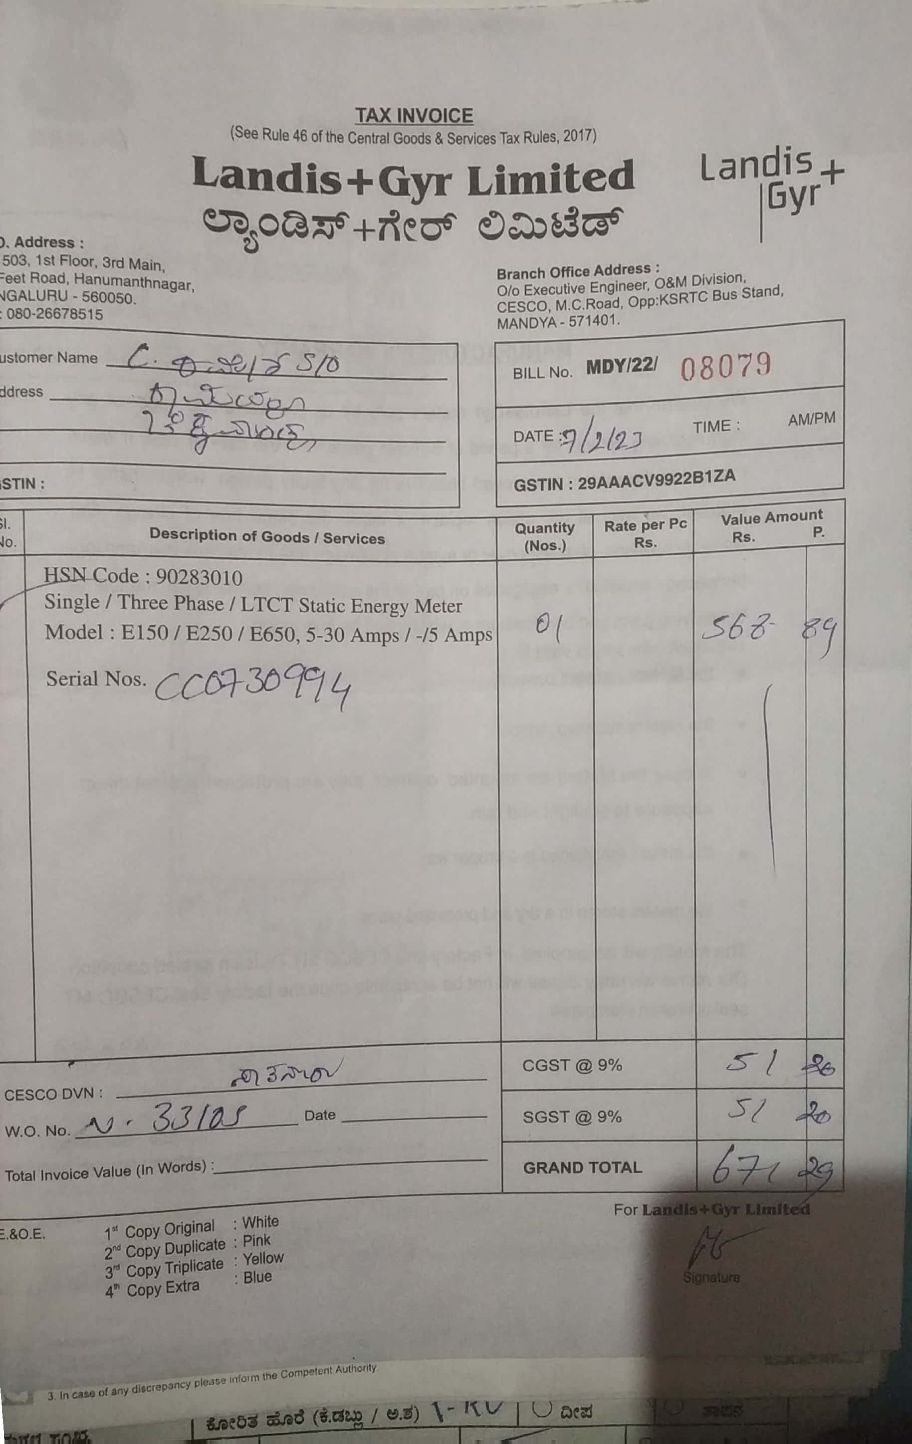 TAX INVOICE
(See Rule 46 of the Central Goods & Services Tax Rules, 2017)
Landis+Gyr Limited
ಲ್ಯಾಂಡಿಸ್+ಗೇರ್ ಲಿಮಿಟೆಡ್
Landis+
Gyr
O. Address :
503, 1st Floor, 3rd Main,
Feet Road, Hanumanthnagar,
NGALURU - 560050.
: 080-26678515
Branch Office Address :
O/o Executive Engineer, O&M Division,
CESCO, M.C.Road, Opp:KSRTC Bus Stand,
MANDYA - 571401.
ustomer Name C. S/O
ddress
STIN :
BILL No. MDY/22/ 08079
DATE : 7/2/23 TIME : AM/PM
GSTIN : 29AAACV9922B1ZA
Sl. No. Description of Goods / Services Quantity (Nos.) Rate per Pc Rs. Value Amount Rs. P.
HSN Code : 90283010
Single / Three Phase / LTCT Static Energy Meter
Model : E150 / E250 / E650, 5-30 Amps / -/5 Amps 01 568- 89
Serial Nos. CC0730994
CESCO DVN :
W.O. No. N. 33/05 Date
Total Invoice Value (In Words) :
CGST @ 9% 51 20
SGST @ 9% 51 20
GRAND TOTAL 671 29
E.&O.E.
1st Copy Original : White
2nd Copy Duplicate : Pink
3rd Copy Triplicate : Yellow
4th Copy Extra : Blue
For Landis+Gyr Limited
Signature
3. In case of any discrepancy please inform the Competent Authority
ಕೋರಿತ ಹೊರೆ (ಕೆ.ಡಬ್ಲ್ಯು / ಅ.ಶ) 1-KV ದೀಪ